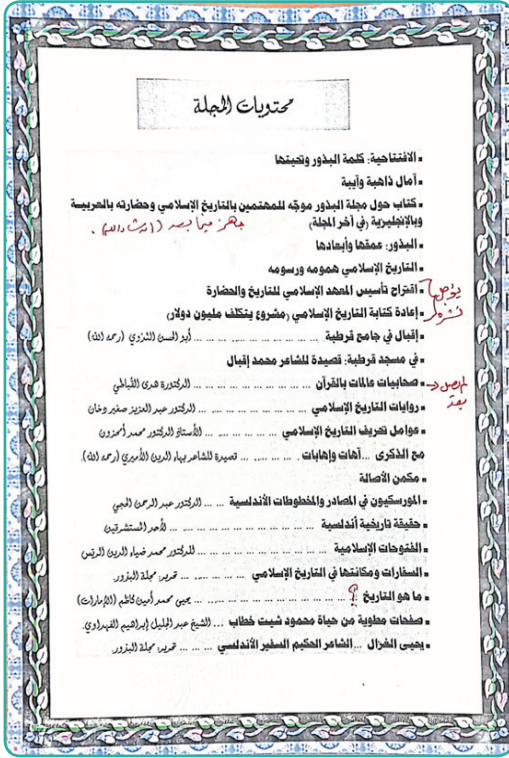 محتويات المجلة
▪ الافتتاحية: كلمة البذور وتحيتها
▪ آمال ذاهبة وآيبة
▪ كتاب حول مجلة البذور موجّه للمهتمين بالتاريخ الإسلامي وحضارته بالعربية
وبالإنجليزية (في آخر المجلة) جاهز فيما بعد (إن شاء الله).
▪ البذور: عمقها وأبعادها
▪ التاريخ الإسلامي همومه ورسومه
▪ اقتراح تأسيس المعهد الإسلامي للتاريخ والحضارة
▪ إعادة كتابة التاريخ الإسلامي (مشروع يتكلف مليون دولار)
يؤجل
نشره
▪ إقبال في جامع قرطبة ... أبو الحسن الندوي (رحمه الله)
▪ في مسجد قرطبة: قصيدة للشاعر محمد إقبال
▪ صحابيات عالمات بالقرآن ... الدكتورة هدى القباطي
لم يصل
بعد
▪ روايات التاريخ الإسلامي ... الدكتور عبد العزيز صغير دخان
▪ عوامل تحريف التاريخ الإسلامي ... الأستاذ الدكتور محمد أمحزون
مع الذكرى ...آهات وإهابات ... قصيدة للشاعر بهاء الدين الأميري (رحمه الله).
▪ مكمن الأصالة
▪ المورسكيون في المصادر والمخطوطات الأندلسية ... الدكتور عبد الرحمن الحجي
▪ حقيقة تاريخية أندلسية ... لأحد المستشرقين
▪ الفتوحات الإسلامية ... للدكتور محمد ضياء الدين الريس
▪ السفارات ومكانتها في التاريخ الإسلامي ... تحرير مجلة البذور.
▪ ما هو التاريخ ؟ ... يحيى محمد أمين كاظم (الإمارات)
▪ صفحات مطوية من حياة محمود شيت خطاب ... الشيخ عبد الجليل إبراهيم الفهداوي.
▪ يحيى الغزال ...الشاعر الحكيم السفير الأندلسي ... تحرير: مجلة البذور